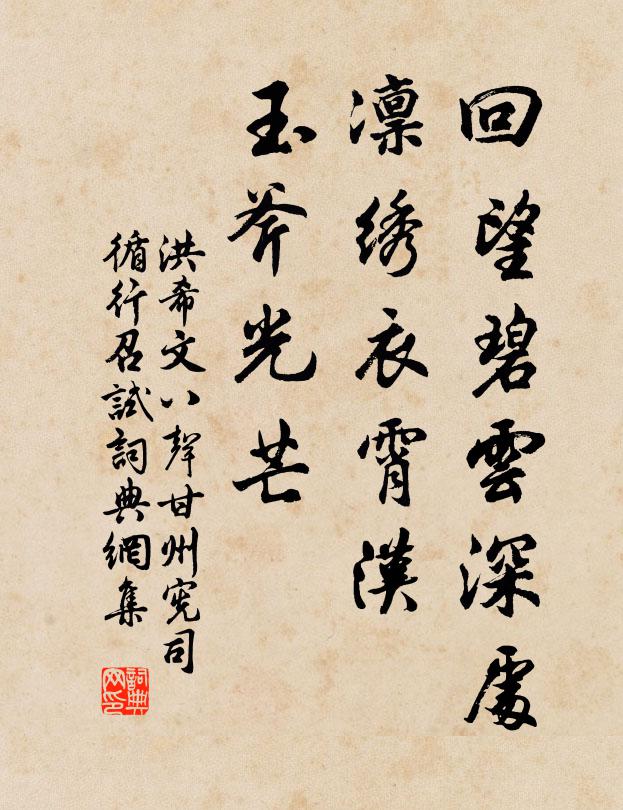 回望碧雲深處
凛绣衣霄漢
玉斧光芒
洪希文八聲甘州宪司
循行召試詞典網集
詞典网印